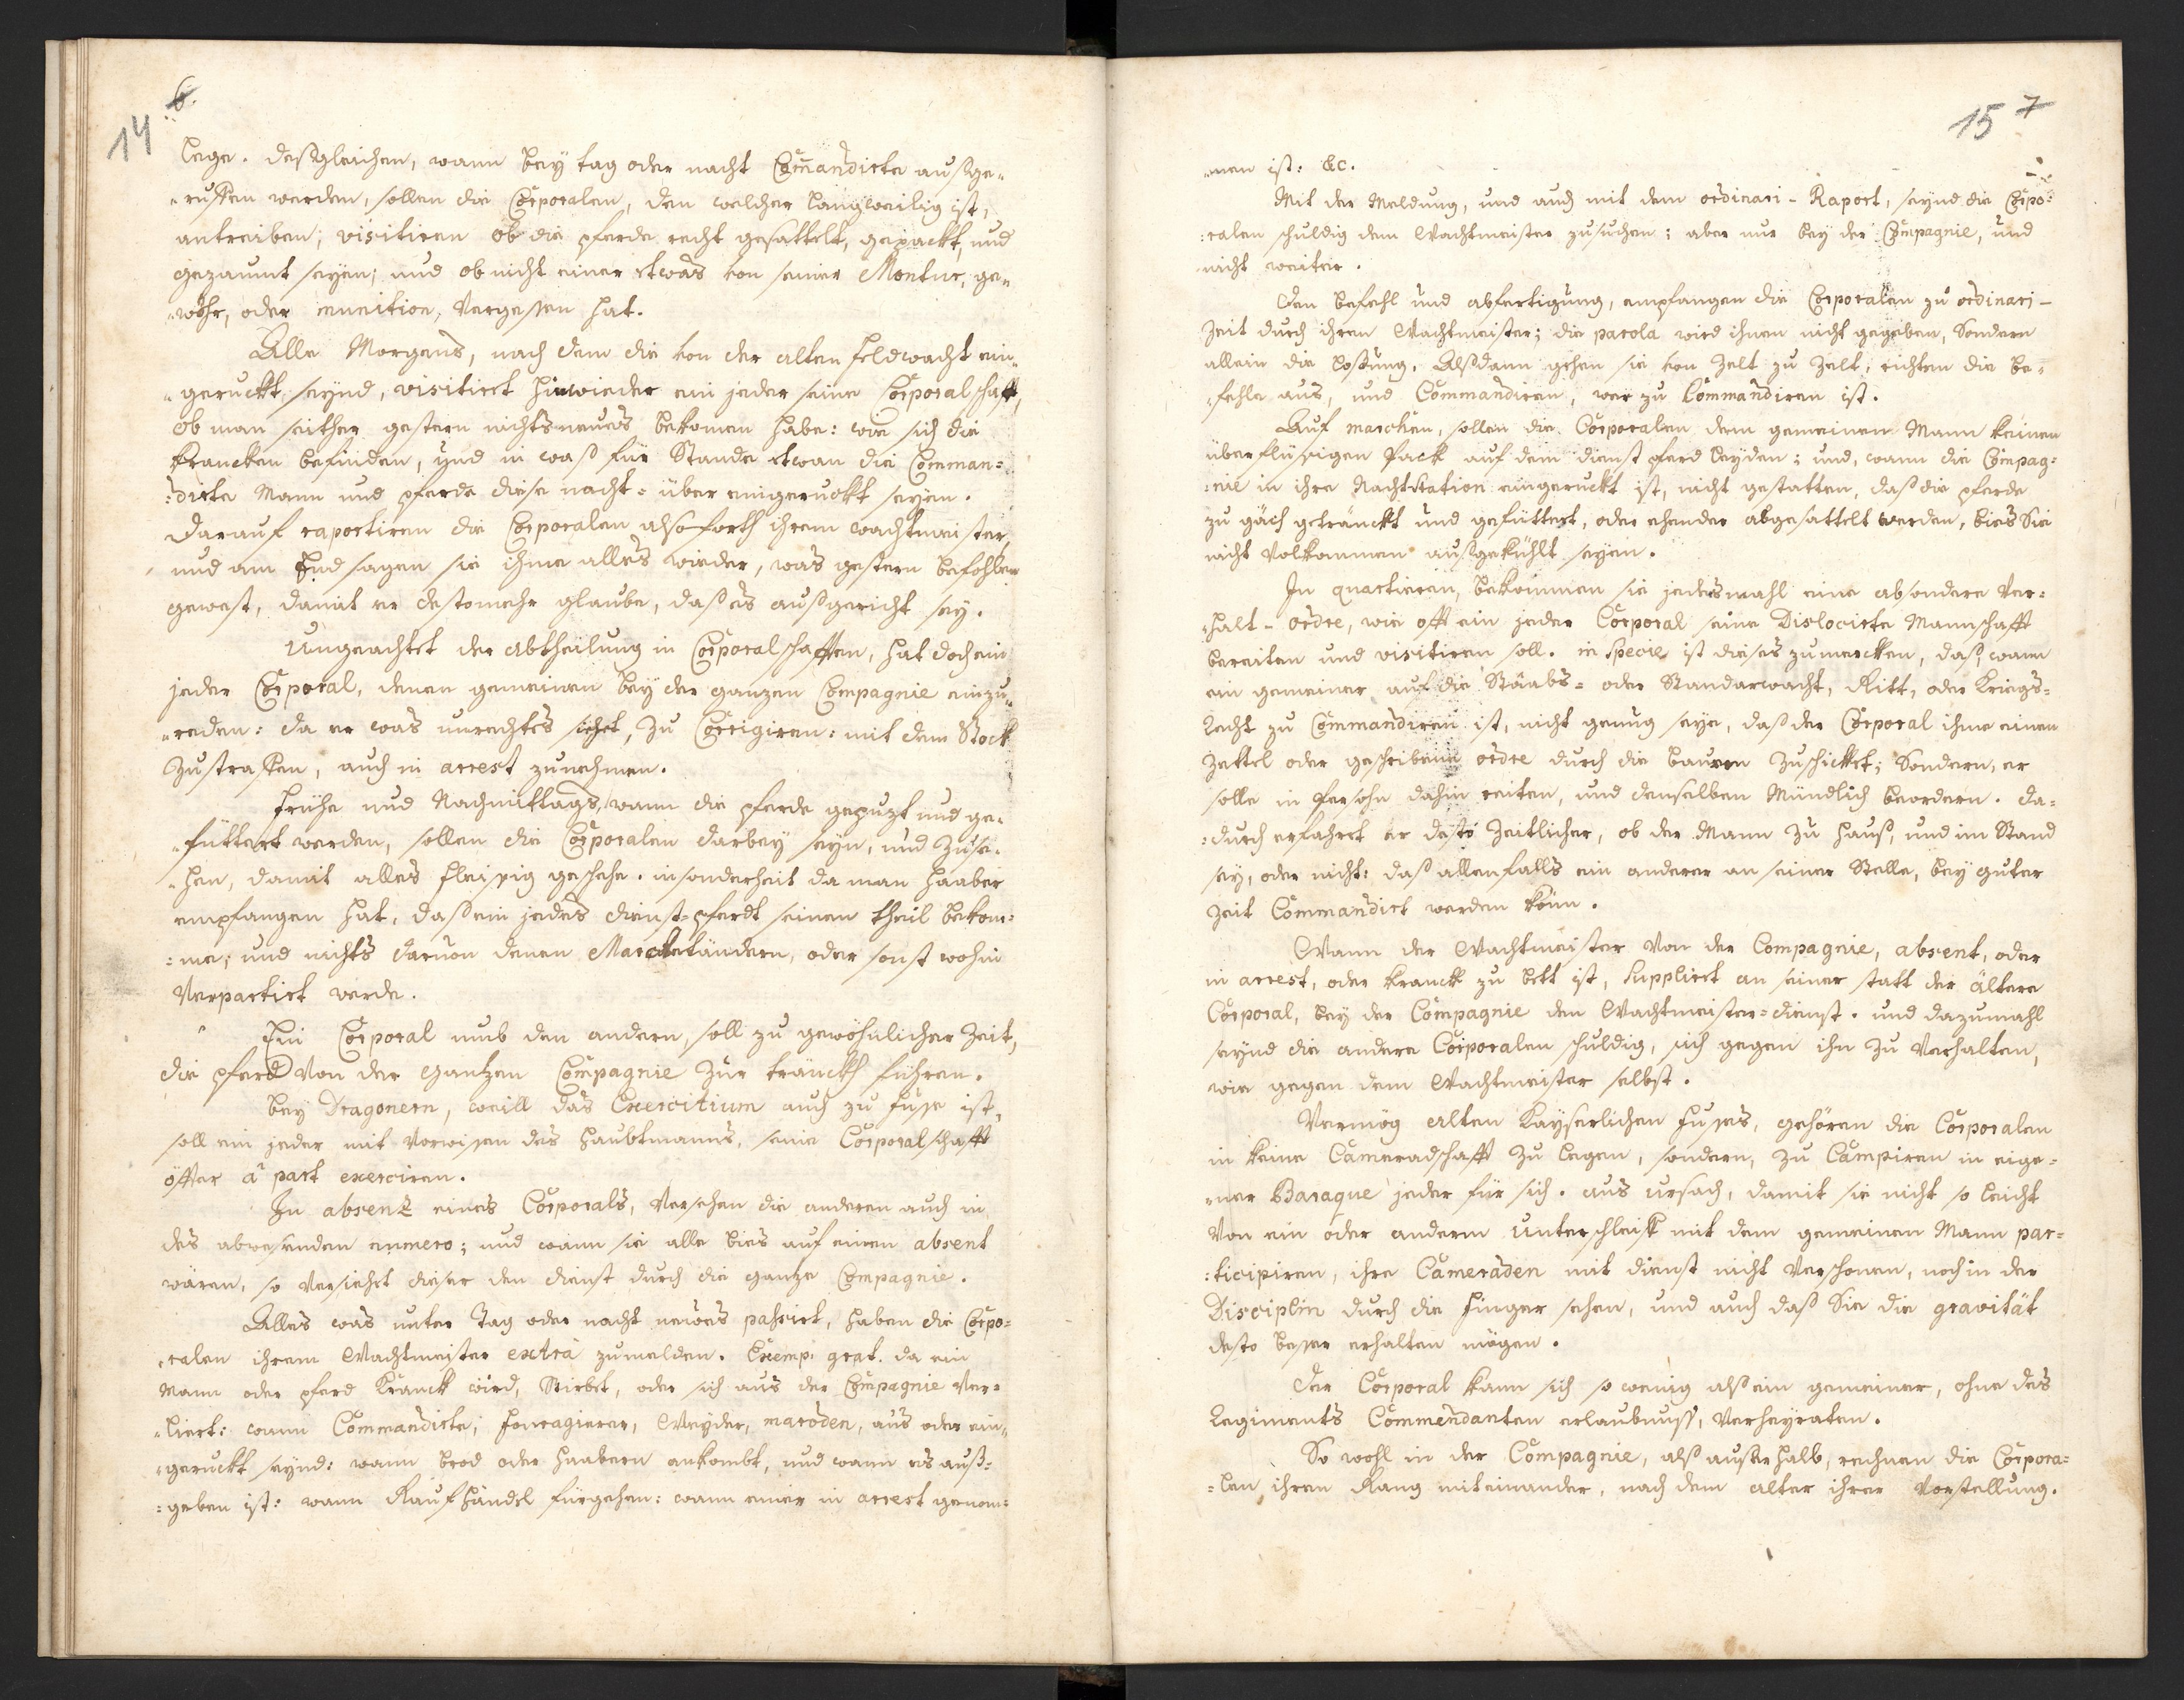 6.
14
lege. deßgleichen, wann bey tag oder nacht Com̃andirte außge„
„ruffen werden, sollen die Corporalen, den welcher langweilig ist,
antreiben; visitiren ob die pferde recht gesattelt, gepackt, und
gezaumt seyen; und ob nicht einer etwas von seiner Montur, ge„
„wöhr, oder munition, Vergessen hat.
Alle Morgens, nach dem die von der alten feldwacht ein„
„geruckt seynd, visitiret hinwieder ein jeder seine Corporalschafft,
ob man seither gestern nichts neues bekomen habe: wie sich die
Krancken befinden, und in waß für Stande etwan die Comman=
:dirte Mann und pferde diese nacht=über eingeruckt seyen.
darauf raportiren die Corporalen also forth ihrem wachtmeister,
und am End sagen sie ihme alles wieder, was gestern befohlen
gewest, damit er destomehr glaube, daß es außgericht sey.
Ungeachtet der abtheilung in Corporalschafften, hat doch ein
jeder Corporal, denen gemeinen bey der ganzen Compagnie einzu„
„reden: da er was unrechtes sihet, zu Corrigiren: mit dem Stock
zustraffen, auch in arrest zunehmen.
Frühe und Nachmittags, wann die pferde gepuzt und ge„
„füttert werden, sollen die Corporalen darbey seyn, und zuse„
„hen, damit alles fleissig geschehe. insonderheit da man haaber
empfangen hat, daß ein jedes dienst=pferdt seinen theil bekom=
:me; und nichts daruon denen Marcketändern, oder sonst wohin
Verpartirt werde.
Ein Corporal umb den andern soll zu gewöhnlicher Zeit,
die pferd von der gantzen Compagnie zur tränckh führen.
bey Dragonern, weill das Exercitium auch zu fusse ist,
soll ein jeder mit Vorwissen des haubtmanns, seine Corporalschafft
öffter à part exerciren.
In absenz eines Corporals, Versehen die anderen auch in
des abwesenden numero; und wann sie alle bies auf einen absent
wären, so Versiehet dieser den dienst durch die ganze Compagnie.
Alles was unter Tag oder nacht neues passirt, haben die Corpo=
„ralen ihrem Wachtmeister extra zumelden. Exemp: grat. da ein
Mann oder pferd Kranck wird, Stirbet, oder sich aus der Compagnie Ver=
„liert: wann Commandirte, fouragierer, Weyder, maroden, aus oder ein„
„geruckt seynd: wann brod oder haabern ankombt, und wann es auß=
:geben ist: wann Raufhändel fürgehen: wann einer in arrest genom=
15 7
„men ist: &c.
Mit der Meldung, und auch mit dem ordinari-Raport, seynd die Corpo=
:ralen schuldig dem Wachtmeister zusuchen: aber nur bey der Compagnie, und
nicht weiter.
Den befehl und abfertigung, empfangen die Corporalen zu ordinari-
Zeit durch ihren Wachtmeister; die parola wird ihnen nicht gegeben, Sondern
allein die losung. Alßdann gehen sie von Zelt zu Zelt, richten die be=
„fehle aus, und Commandiren, wer zu Commandiren ist.
Auf marchen, sollen die Corporalen dem gemeinen Mann keinen
überflüssigen Pack auf dem dienst pferd leyden; und, wann die Compag=
:nie in ihre Nachtstation eingeruckt ist, nicht gestatten, daß die pferde
zu gäch getränckt und gefüttert, oder ehender abgesattelt werden, bies Sie
nicht Volkommen außgekühlt seyen.
In quartieren, bekommen sie jedesmahl eine absondere Ver=
„halt-ordre, wie offt ein jeder Corporal seine Dislocirte Mannschafft
bereiten und visitiren soll. in Specie ist dieses zumercken, daß, wann
ein gemeiner auf die Stäabs= oder Standarwacht, Ritt, oder Kriegs=
Recht zu Commandiren ist, nicht genug seye, daß der Corporal ihme einen
Zettel oder geschribene ordre durch die bauren zuschicket; Sondern, er
solle in Persohn dahin reiten, und denselben Mündlich beordern. da=
:durch erfahret er desto Zeitlicher, ob der Mann zu hauß, und im Stand
sey, oder nicht: daß allenfalls ein anderer an seiner Stelle, bey guter
Zeit Commandirt werden könn.
Wann der Wachtmeister von der Compagnie, absent, oder
in arrest, oder kranck zu bett ist, Suppliret an seiner statt der ältere
Corporal, bey der Compagnie den Wachtmeister=dienst. und dazumahl
seynd die andere Corporalen schuldig, sich gegen ihn zu Verhalten,
wie gegen dem Wachtmeister selbst.
Vermög alten Kayserlichen Fusses, gehören die Corporalen
in keine Cameradschafft zu legen, sondern, zu Campiren in eige=
„ner Baraque jeder für sich. aus ursach, damit sie nicht so leicht
Von ein oder anderm Unterschleiff mit dem gemeinen Mann par=
:ticipiren, ihre Cameraden mit dienst nicht Verschonen, noch in der
Disciplin durch die Finger sehen, und auch daß Sie die gravität
desto besser erhalten mögen.
Der Corporal kann sich so wenig alß ein gemeiner, ohne des
Regiments Commendanten erlaubnuss, Verheyraten.
So wohl in der Compagnie, alß ausser halb, rechnen die Corpora=
=len ihren Rang miteinander, nach dem alter ihrer Vorstellung.